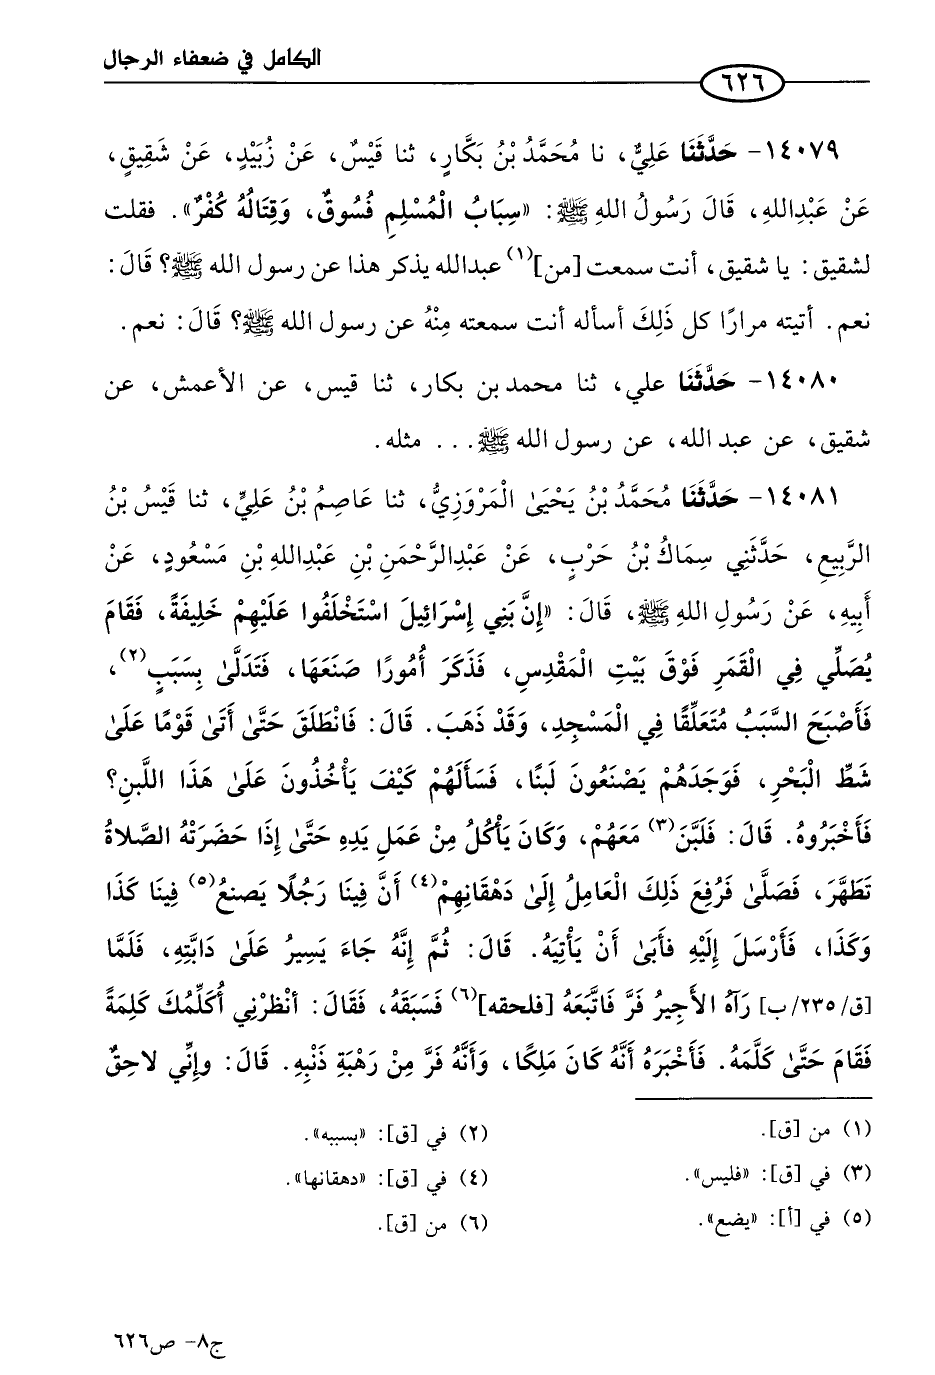 الكامل في ضعفاء الرجال
٦٢٦
١٤٠٧٩- حَدَّثَنَا عَلِيٌّ، نا مُحَمَّدُ بْنُ بَكَّارٍ، ثنا قَيْسٌ، عَنْ زُبَيْدٍ، عَنْ شَقِيقٍ،
عَنْ عَبْدِاللهِ، قَالَ رَسُولُ اللهِ ﷺ: «سِبَابُ الْمُسْلِمِ فُسُوقٌ، وَقِتَالُهُ كُفْرٌ». فقلت
لشقيق: يا شقيق، أنت سمعت [من](١) عبدالله يذكر هذا عن رسول الله ﷺ؟ قَالَ:
نعم. أتيته مرارًا كل ذَلِكَ أسأله أنت سمعته مِنْهُ عن رسول الله ﷺ؟ قَالَ: نعم.
١٤٠٨٠- حَدَّثَنَا علي، ثنا محمد بن بكار، ثنا قيس، عن الأعمش، عن
شقيق، عن عبد الله، عن رسول الله ﷺ... مثله.
١٤٠٨١- حَدَّثَنَا مُحَمَّدُ بْنُ يَحْيَىٰ الْمَرْوَزِيُّ، ثنا عَاصِمُ بْنُ عَلِيٍّ، ثنا قَيْسُ بْنُ
الرَّبِيعِ، حَدَّثَنِي سِمَاكُ بْنُ حَرْبٍ، عَنْ عَبْدِالرَّحْمَنِ بْنِ عَبْدِاللهِ بْنِ مَسْعُودٍ، عَنْ
أَبِيهِ، عَنْ رَسُولِ اللهِ ﷺ، قَالَ: «إِنَّ بَنِي إِسْرَائِيلَ اسْتَخْلَفُوا عَلَيْهِمْ خَلِيفَةً، فَقَامَ
يُصَلِّي فِي الْقَمَرِ فَوْقَ بَيْتِ الْمَقْدِسِ، فَذَكَرَ أُمُورًا صَنَعَهَا، فَتَدَلَّىٰ بِسَبَبٍ(٢)،
فَأَصْبَحَ السَّبَبُ مُتَعَلِّقًا فِي الْمَسْجِدِ، وَقَدْ ذَهَبَ. قَالَ: فَانْطَلَقَ حَتَّىٰ أَتَىٰ قَوْمًا عَلَىٰ
شَطِّ الْبَحْرِ، فَوَجَدَهُمْ يَصْنَعُونَ لَبِنًا، فَسَأَلَهُمْ كَيْفَ يَأْخُذُونَ عَلَىٰ هَذَا اللَّبنِ؟
فَأَخْبَرُوهُ. قَالَ: فَلَبَّنَ(٣) مَعَهُمْ، وَكَانَ يَأْكُلُ مِنْ عَمَلِ يَدِهِ حَتَّىٰ إِذَا حَضَرَتْهُ الصَّلاةُ
تَطَهَّرَ، فَصَلَّىٰ فَرُفِعَ ذَلِكَ الْعَامِلُ إِلَىٰ دَهْقَانِهِمْ(٤) أَنَّ فِينَا رَجُلًا يَصنعُ(٥) فِينَا كَذَا
وَكَذَا، فَأَرْسَلَ إِلَيْهِ فأَبَىٰ أَنْ يَأْتِيَهُ. قَالَ: ثُمَّ إِنَّهُ جَاءَ يَسِيرُ عَلَىٰ دَابَّتِهِ، فَلَمَّا
[ق/٢٣٥/ب] رَآهُ الأَجِيرُ فَرَّ فَاتَّبَعَهُ [فلحقه](٦) فَسَبَقَهُ، فَقَالَ: أنْظرْنِي أُكَلِّمُكَ كَلِمَةً
فَقَامَ حَتَّىٰ كَلَّمَهُ. فَأَخْبَرَهُ أَنَّهُ كَانَ مَلِكًا، وَأَنَّهُ فَرَّ مِنْ رَهْبَةِ ذَنْبِهِ. قَالَ: وإِنِّي لاحِقٌ
(١) من [ق].
(٢) في [ق]: «بسببه».
(٣) في [ق]: «فليس».
(٤) في [ق]: «دهقانها».
(٥) في [أ]: «يضع».
(٦) من [ق].
ج٨- ص٦٢٦